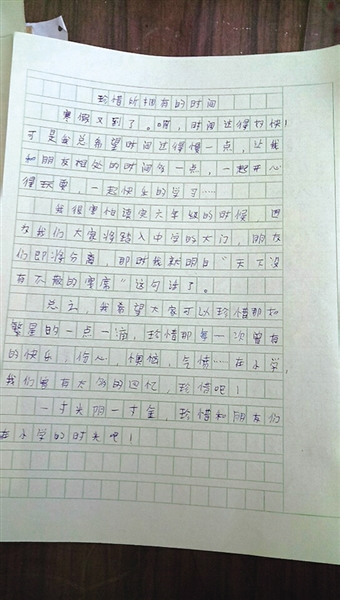 珍惜所拥有的时间
寒假又到了。唉，时间过得好快！
可是我总希望时间过得慢一点，让我
和朋友相处的时间多一点，一起开心
得玩耍，一起快乐的学习……
我很害怕读完六年级的时候，因
为我们大家将踏入中学的大门，朋友
们即将分离，那时我就明白“天下没
有不散的宴席”这句话了。
总之，我希望大家可以珍惜那如
繁星的一点一滴，珍惜那每一次留有
的快乐，伤心，懊恼，气愤……在小学，
我们留有太多的回忆，珍惜吧！
一寸光阴一寸金，珍惜和朋友们
在小学的时光吧！